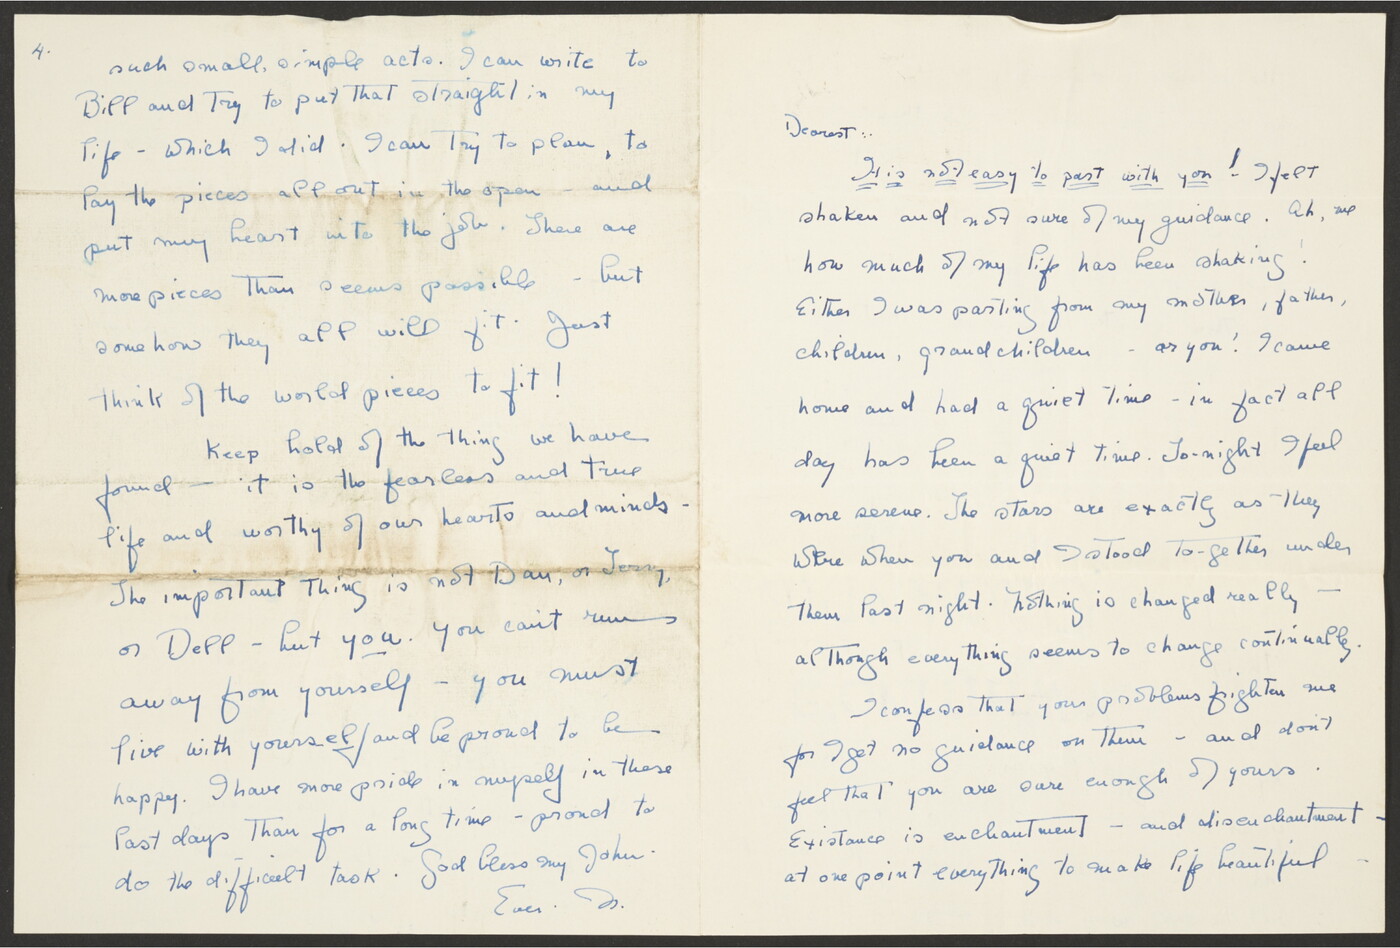 4.
such small, simple acts. I can write to
Bill and Try to put that straight in my
life - which I did. I can Try to plan, to
lay the pieces all out in the open - and
put my heart into the job. There are
more pieces Than seems possible - but
somehow they all will fit. Just
think of the world pieces to fit!
Keep hold of the thing we have
found - it is the fearless and true
life and worthy of our hearts and minds -
The important thing is not Dan, or Jerry,
or Dell - but you. You can't run
away from yourself - you must
live with yourself/and be proud to be
happy. I have more pride in myself in these
last days Than for a long time - proud to
do the difficult task. God bless my John.
Ever. M.
Dearest:.
It is not easy to part with you! I felt
shaken and not sure of my guidance. Ah, me
how much of my life has been shaking!
Either I was parting from my mother, father,
children, grandchildren - or you! I came
home and had a quiet time - in fact all
day has been a quiet time. To-night I feel
more serene. The stars are exactly as They
were when you and I stood to-gether under
them last night. Nothing is changed really -
although everything seems to change continually.
I confess that your problems frighten me
for I get no guidance on Them - and don't
feel that you are sure enough of yours.
Existance is enchantment - and disenchantment -
at one point everything to make life beautiful -